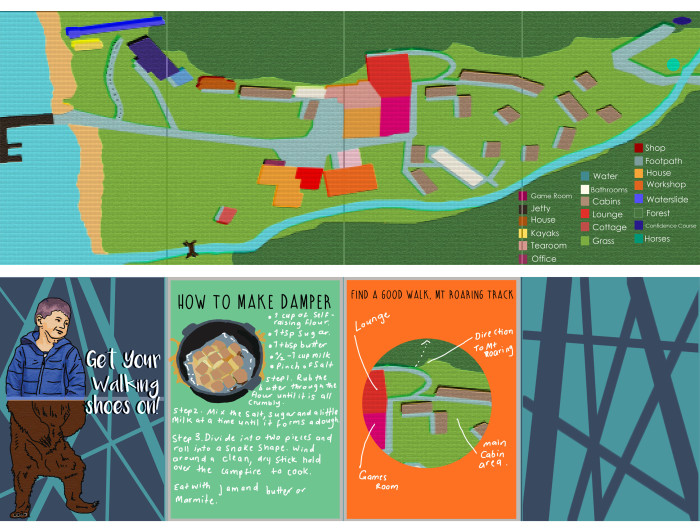 Game Room
Jetty
House
Kayaks
Tearoom
Office
Water
Bathrooms
Cabins
Lounge
Cottage
Grass
Shop
Footpath
House
Workshop
Waterslide
Forest
Confidence Course
Horses
Get Your
Walking
shoes on!
HOW TO MAKE DAMPER
• 1 cup of Self-
raising flour.
• 1 tsp sugar.
• 1 tbsp butter
• 1/2 - 1 cup milk
• Pinch of Salt
Step 1. Rub the
butter through the
flour until it is all
crumbly.
Step 2. Mix the salt, sugar and a little
milk at a time until it forms a dough
Step 3. Divide into two pieces and
roll into a snake shape. Wind
around a clean, dry stick hold
over the campfire to cook.
Eat with jam and butter or
Marmite.
FIND A GOOD WALK, MT ROARING TRACK
Lounge
Direction
To Mt
Roaring
main
Cabin
area.
Games
Room